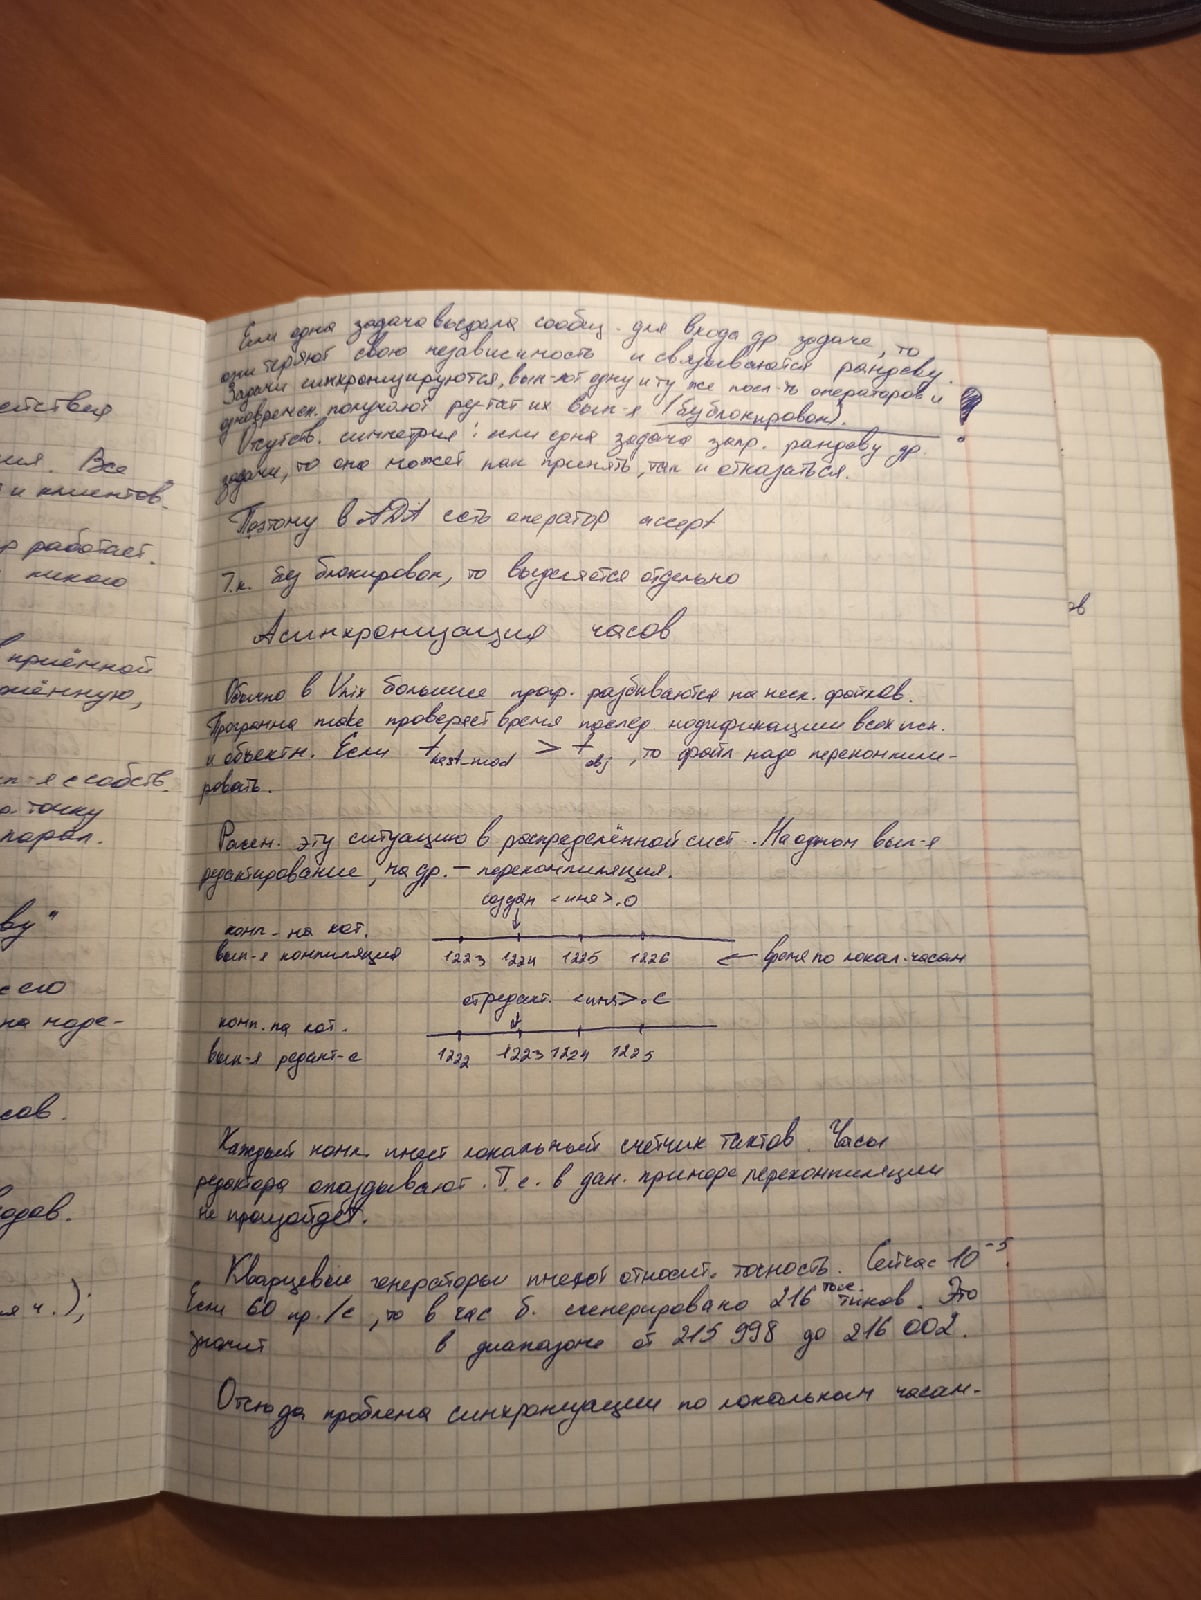 ействия
ния. Все
т и клиентов.
р работает.
никого
в приёмной
жённую,
п-я с собств.
а точку
парал.
ву"
с его
на наре-
сов.
одов.
я ч.);
Если одна задача выдала сообщ. для входа др задаче, то
они теряют свою независимость и связываются рандеву.
Задачи синхронизируются, вып-ют одну и ту же посл-ть операторов и
одновремен. получают рез-тат их вып-я (без блокировок).
Отсутств. симметрия: если одна задача запр. рандеву др.
задачи, то она может как принять, так и отказаться.
!
Поэтому в ADA есть оператор accept
Т.к. без блокировок, то выделяется отдельно
Асинхронизация часов
Обычно в Unix большие прогр. разбиваются на неск. файлов.
Программа make проверяет время послед модификации всех исх.
и объектн. Если t last-mod > t obj, то файл надо перекомпили-
ровать.
Рассм. эту ситуацию в распределённой сист. На одном вып-я
редактирование, на др. – перекомпиляция.
создан <имя>.O
комп. на кот.
вып-я компиляция 1223 1224 1225 1226 ← время по локал. часам
отредакт. <имя>.c
комп. на кот.
вып-я редакт-е 1222 1223 1224 1225
Каждый комп. имеет локальный счетчик тактов. Часы
редактора опаздывают. Т.е. в дан. примере перекомпиляции
не произойдет.
Кварцевые генераторы имеют относит. точность. Сейчас 10⁻⁵.
Если 60 пр./с, то в час б. сгенерировано 216 тыс. тиков. Это
значит в диапазоне от 215 998 до 216 002.
Отсюда проблема синхронизации по локальным часам.
ов